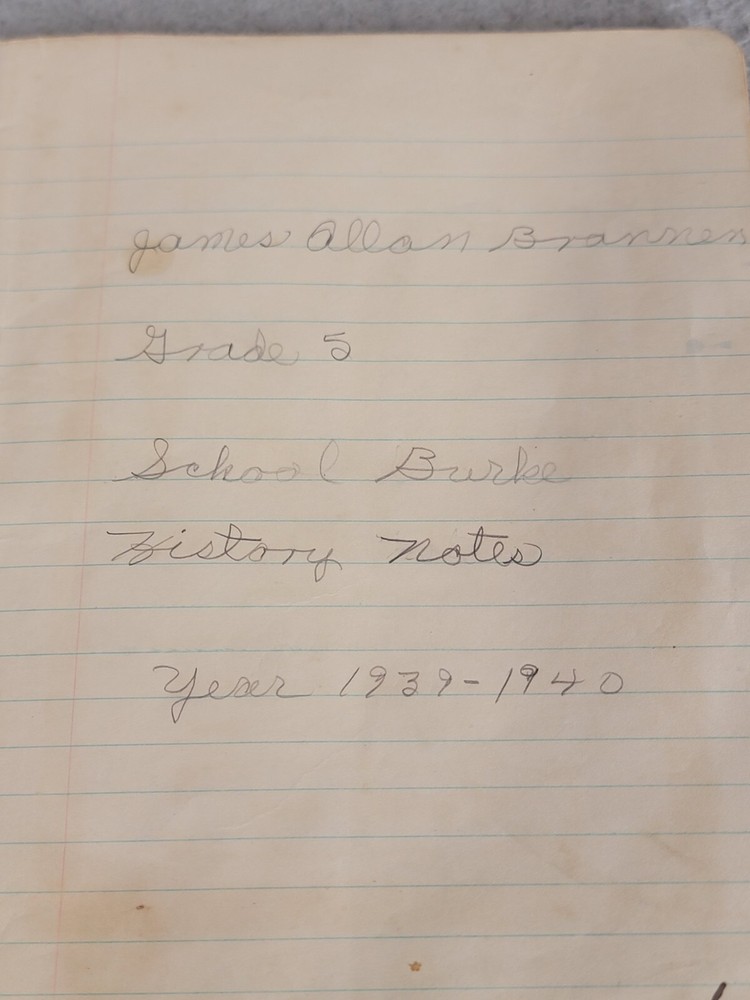 James Allan Brannen
Grade 5
School Burke
History Notes
Year 1939-1940